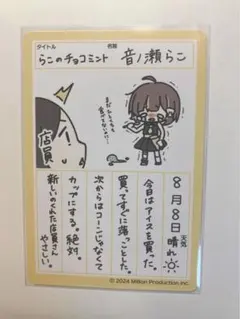 タイトル
らこのチョコミント
名前
音ノ瀬らこ
まだひとくちも
食べてないのに…
店員
8月8日
天気
晴れ
今日はアイスを買った。
買ってすぐに落っことした。
次からはコーンじゃなくて
カップにする。絶対。
新しいのくれた店員さん
やさしい。
© 2024 Million Production.inc